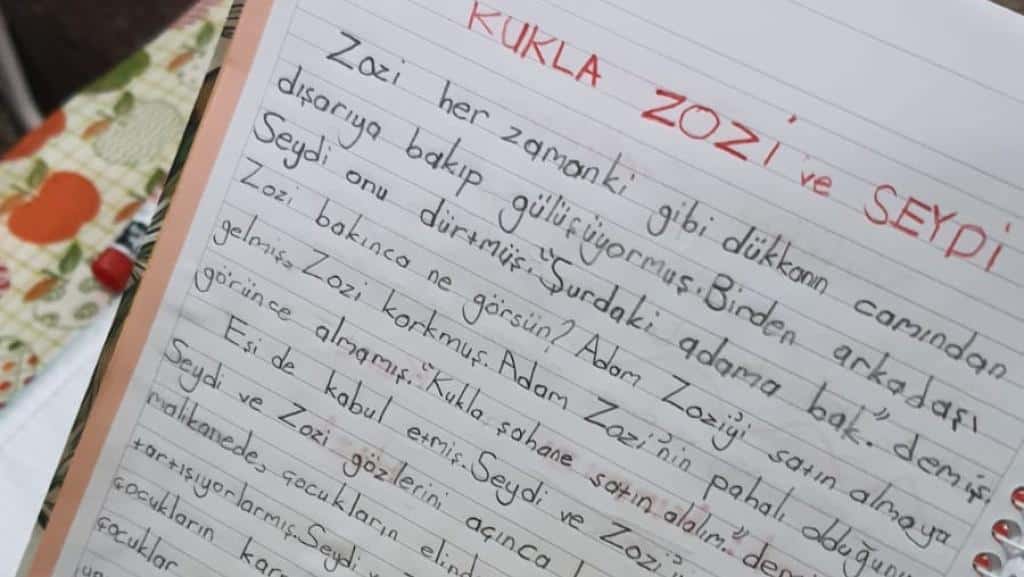 KUKLA ZOZİ ve SEYDİ
Zozi her zamanki gibi dükkanın camından
dışarıya bakıp gülüçüyormuş. Birden arkadaşı
Seydi onu dürtmüş. "Şurdaki adama bak." demiş.
Zozi bakınca ne görsün? Adam Zozi'yi satın almaya
gelmiş. Zozi korkmuş. Adam Zozi'nin pahalı olduğunu
görünce almamış. "Kukla şahane satın alalım."
Eşi de kabul etmiş. Seydi ve Zozi
Seydi ve Zozi gözlerini açınca
malikanede, çocukların
tartışıyorlarmış. Seydi
çocukların
çocuklar